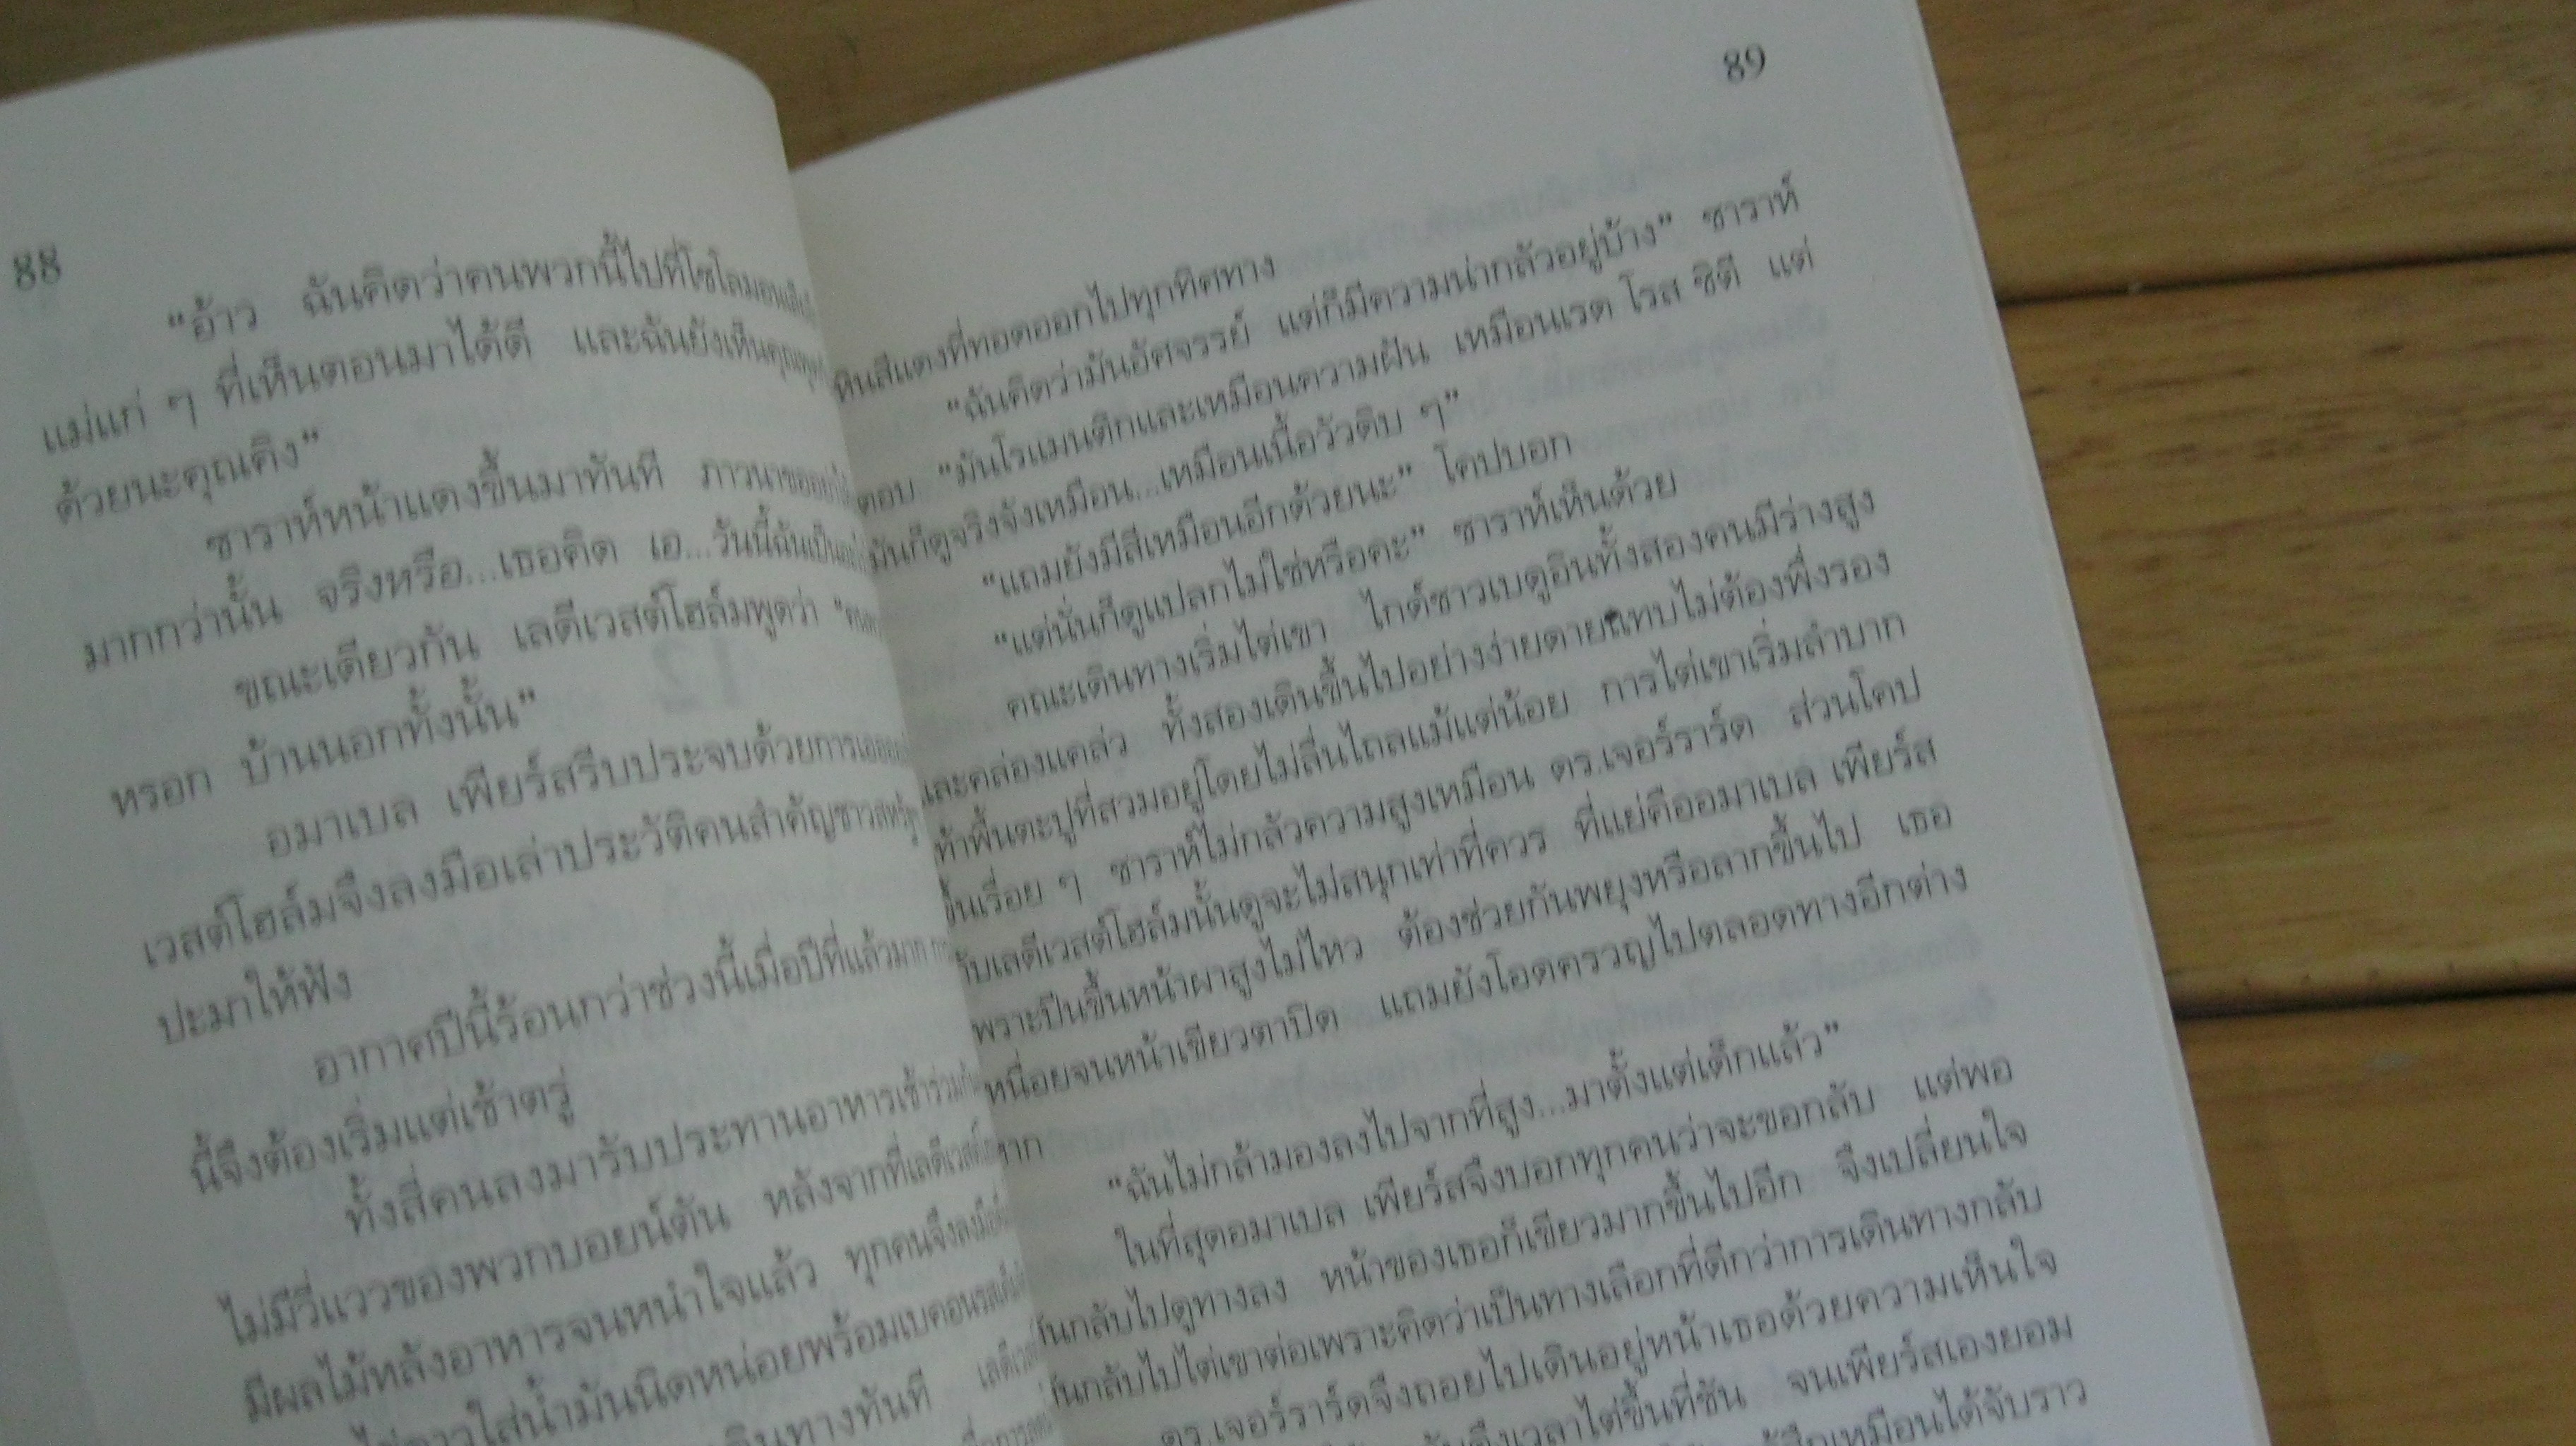 88
“อ้าว ฉันคิดว่าคนพวกนี้ไปที่โซโลมอน
แม่แก่ ๆ ที่เห็นตอนมาได้ดี และฉันยังเห็นคุณ
ด้วยนะคุณคิง”
ซาราห์หน้าแดงขึ้นมาทันที ภาวนาขออย่า
มากกว่านั้น จริงหรือ...เธอคิด เอ...วันนี้ฉันเป็น
ขณะเดียวกัน เลดีเวสต์โฮล์มพูดว่า
หรอก บ้านนอกทั้งนั้น”
อมาเบล เพียร์สรีบประจบด้วยการ
เวสต์โฮล์มจึงลงมือเล่าประวัติคนสำคัญชาว
ปะมาให้ฟัง
อากาศปีนี้ร้อนกว่าช่วงนี้เมื่อปีที่แล้วมาก
นี้จึงต้องเริ่มแต่เช้าตรู่
ทั้งสี่คนลงมารับประทานอาหารเช้าร่วม
ไม่มีวี่แววของพวกบอยน์ตัน หลังจากที่เลดีเวสต์
มีผลไม้หลังอาหารจนหนำใจแล้ว ทุกคนจึงลงมือ
ไข่ดาวใส่น้ำมันนิดหน่อยพร้อมเบคอน
เดินทางทันที
89
หินสีแดงที่ทอดออกไปทุกทิศทาง
“ฉันคิดว่ามันอัศจรรย์ แต่ก็มีความน่ากลัวอยู่บ้าง” ซาราห์
ตอบ “มันโรแมนติกและเหมือนความฝัน เหมือนเรด โรส ซิตี แต่
มันก็ดูจริงจังเหมือน...เหมือนเนื้อวัวดิบ ๆ”
“แถมยังมีสีเหมือนอีกด้วยนะ” โคปบอก
“แต่นั่นก็ดูแปลกไม่ใช่หรือคะ” ซาราห์เห็นด้วย
คณะเดินทางเริ่มไต่เขา ไกด์ชาวเบดูอินทั้งสองคนมีร่างสูง
และคล่องแคล่ว ทั้งสองเดินขึ้นไปอย่างง่ายดายแทบไม่ต้องพึ่งรอง
เท้าพื้นตะปูที่สวมอยู่โดยไม่ลื่นไถลแม้แต่น้อย การไต่เขาเริ่มลำบาก
ขึ้นเรื่อย ๆ ซาราห์ไม่กลัวความสูงเหมือน ดร.เจอร์ราร์ด ส่วนโคป
กับเลดีเวสต์โฮล์มนั้นดูจะไม่สนุกเท่าที่ควร ที่แย่คืออมาเบล เพียร์ส
เพราะปีนขึ้นหน้าผาสูงไม่ไหว ต้องช่วยกันพยุงหรือลากขึ้นไป เธอ
เหนื่อยจนหน้าเขียวตาปิด แถมยังโอดครวญไปตลอดทางอีกต่าง
หาก
“ฉันไม่กล้ามองลงไปจากที่สูง...มาตั้งแต่เด็กแล้ว”
ในที่สุดอมาเบล เพียร์สจึงบอกทุกคนว่าจะขอกลับ แต่พอ
หันกลับไปดูทางลง หน้าของเธอก็เขียวมากขึ้นไปอีก จึงเปลี่ยนใจ
หันกลับไปไต่เขาต่อเพราะคิดว่าเป็นทางเลือกที่ดีกว่าการเดินทางกลับ
ดร.เจอร์ราร์ดจึงถอยไปเดินอยู่หน้าเธอด้วยความเห็นใจ
ถึงเวลาไต่ขึ้นที่ชัน จนเพียร์สเองยอม
รู้สึกเหมือนได้จับราว